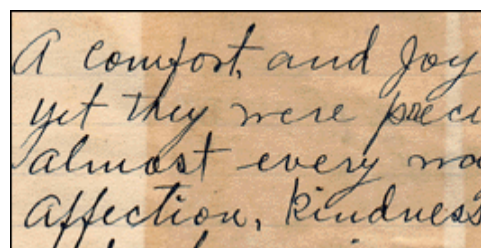 A comfort, and Joy
yet they were preci
almost every
affection, kindness